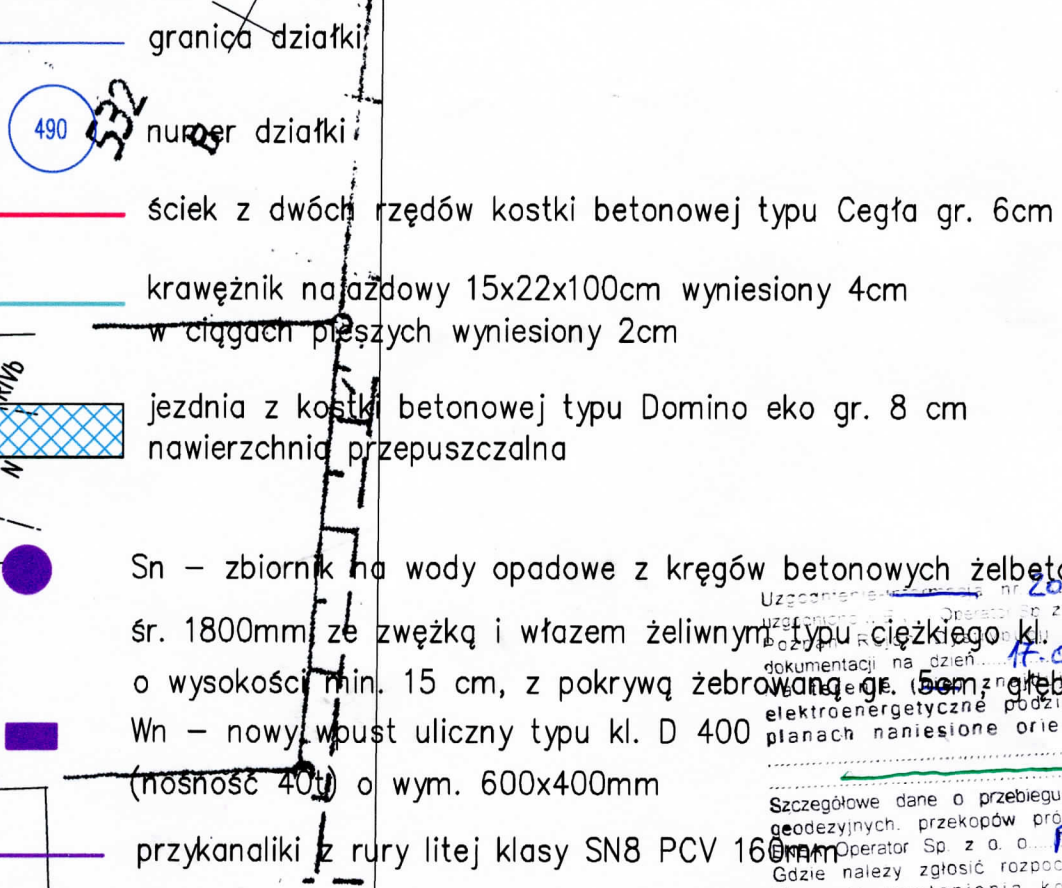 granica działki
490
532
B
numer działki
ściek z dwóch rzędów kostki betonowej typu Cegła gr. 6cm
krawężnik najazdowy 15x22x100cm wyniesiony 4cm
w ciągach pieszych wyniesiony 2cm
jezdnia z kostki betonowej typu Domino eko gr. 8 cm
nawierzchnia przepuszczalna
N
Sn – zbiornik na wody opadowe z kręgów betonowych
śr. 1800mm ze zwężką i włazem żeliwnym typu ciężkiego kl.
o wysokości min. 15 cm, z pokrywą żebrowaną gr. 5cm,
Wn – nowy wpust uliczny typu kl. D 400
(nośność 40t) o wym. 600x400mm
przykanaliki z rury litej klasy SN8 PCV 160mm
nr
Operator Sp z
dokumentacji na dzień 17
elektroenergetyczne
planach naniesione
Szczegółowe dane o przebiegu
geodezyjnych. przekopów
Operator Sp. z o. o.
Gdzie należy zgłosić